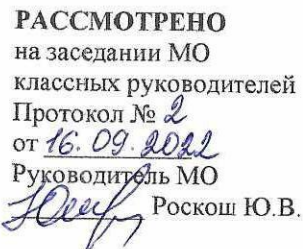 РАССМОТРЕНО
на заседании МО
классных руководителей
Протокол № 2
от 16. 09. 2022
Руководитель МО
Роскош Ю.В.